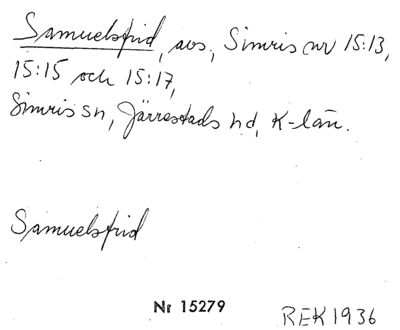 Samuelsfrid, avs, Simris nr 15:13,
15:15 och 15:17,
Simris sn, Järrestads hd, K-län.
Samuelsfrid
Nr 15279
REK 1936